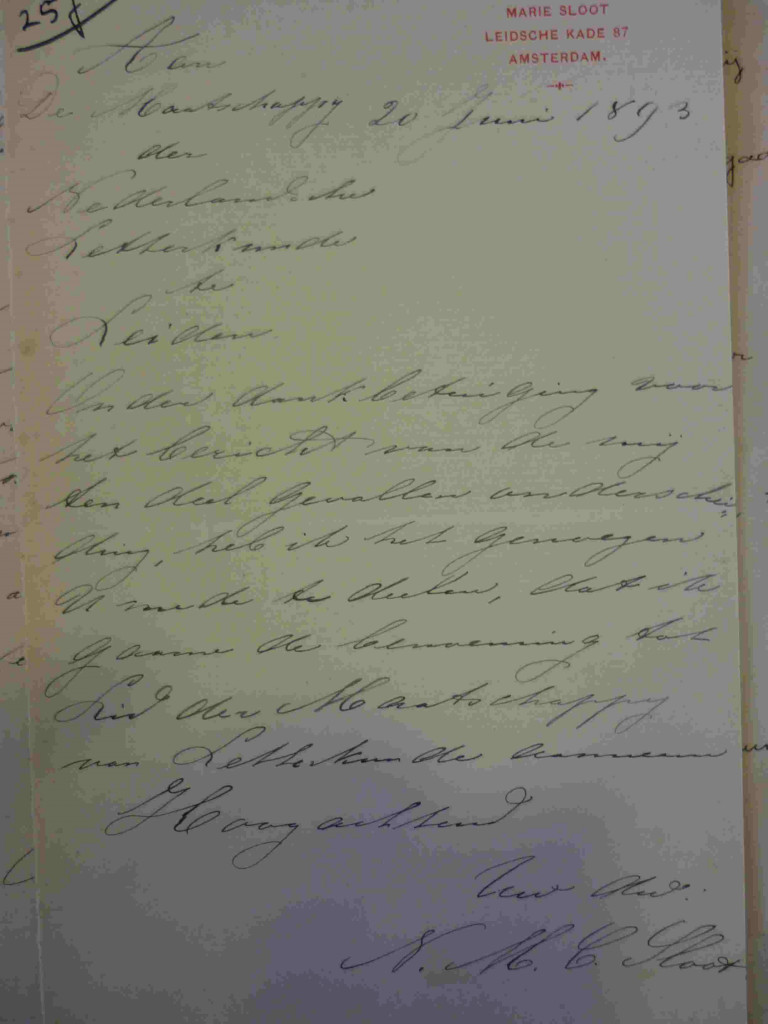 25
MARIE SLOOT
LEIDSCHE KADE 87
AMSTERDAM.
Aan
De Maatschappy 20 Juni 1893
der
Nederlandsche
Letterkunde
te
Leiden
Onder dankbetuiging voor
het bericht van de mij
ten deel gevallen onderschei-
ding, heb ik het genoegen
U mede te deelen, dat ik
gaarne de benoeming tot
Lid der Maatschappy
van Letterkunde aanneem
Hoogachtend
Uw dw.
N. M. C. Sloot